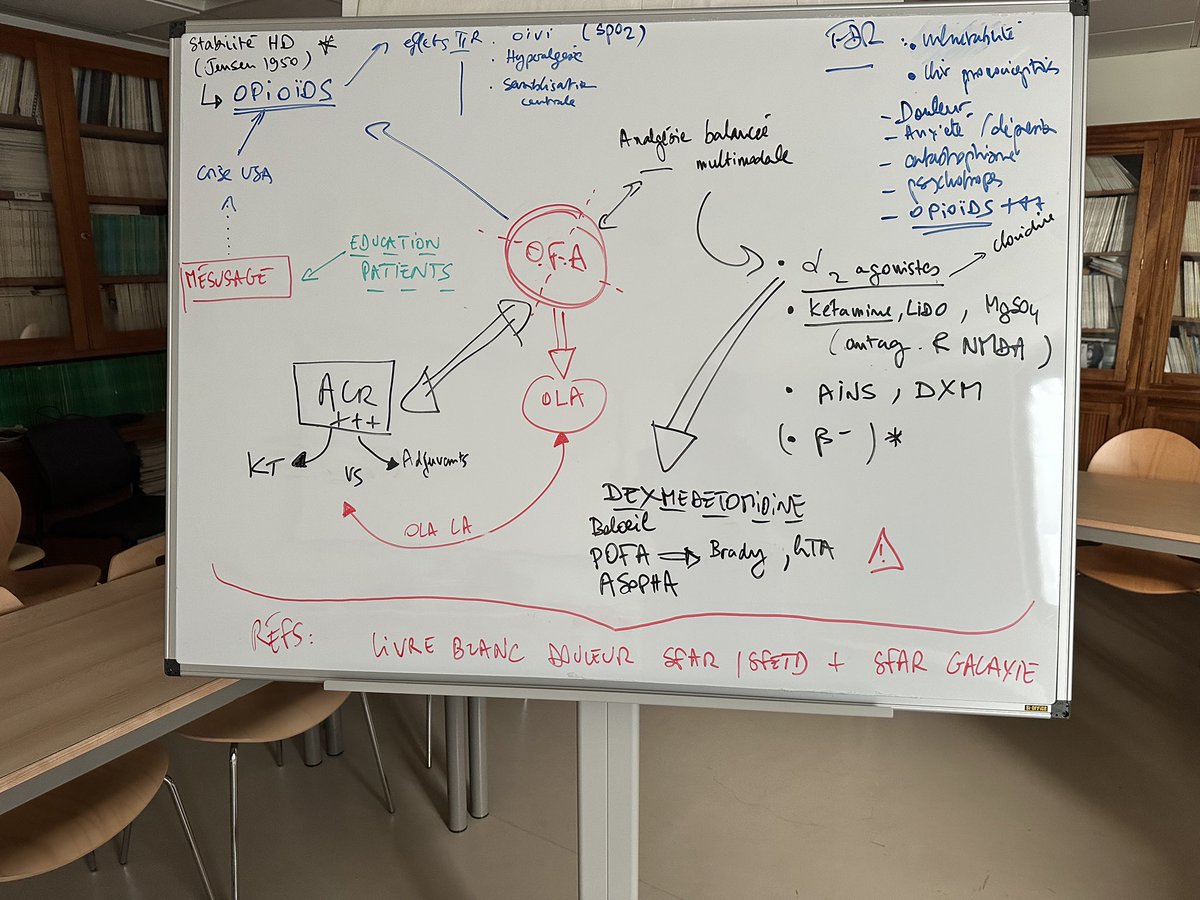 Stabilité HD *
(Jensen 1950)
↳ OPiOïDS
effets IIR
. oivi (SpO2)
. Hyperalgésie
. Sensibilisation
centrale
Crise USA
MÉSUSAGE
EDUCATION
PATIENTS
O.F.A
Analgésie balancée
multimodale
: Vulnérabilité
• Chir pronociceptives
- Douleur
- Anxiété / dépression
- catastrophisme
- psychotropes
- OPiOïDS +++
• α2 agonistes
clonidine
• Ketamine, LiDO, MgSO4
(antag. R NMDA)
• AiNS, DXM
(• β-)*
ACR
+++
KT
vs
Adjuvants
OLA
OLA LA
DEXMEDETOMIDINE
Beloeil
POFA ⇒ Brady, hTA
!
ASePHA
RÉFS: LiVRE BLANC DOULEUR SFAR / SFETD + SFAR GALAXIE